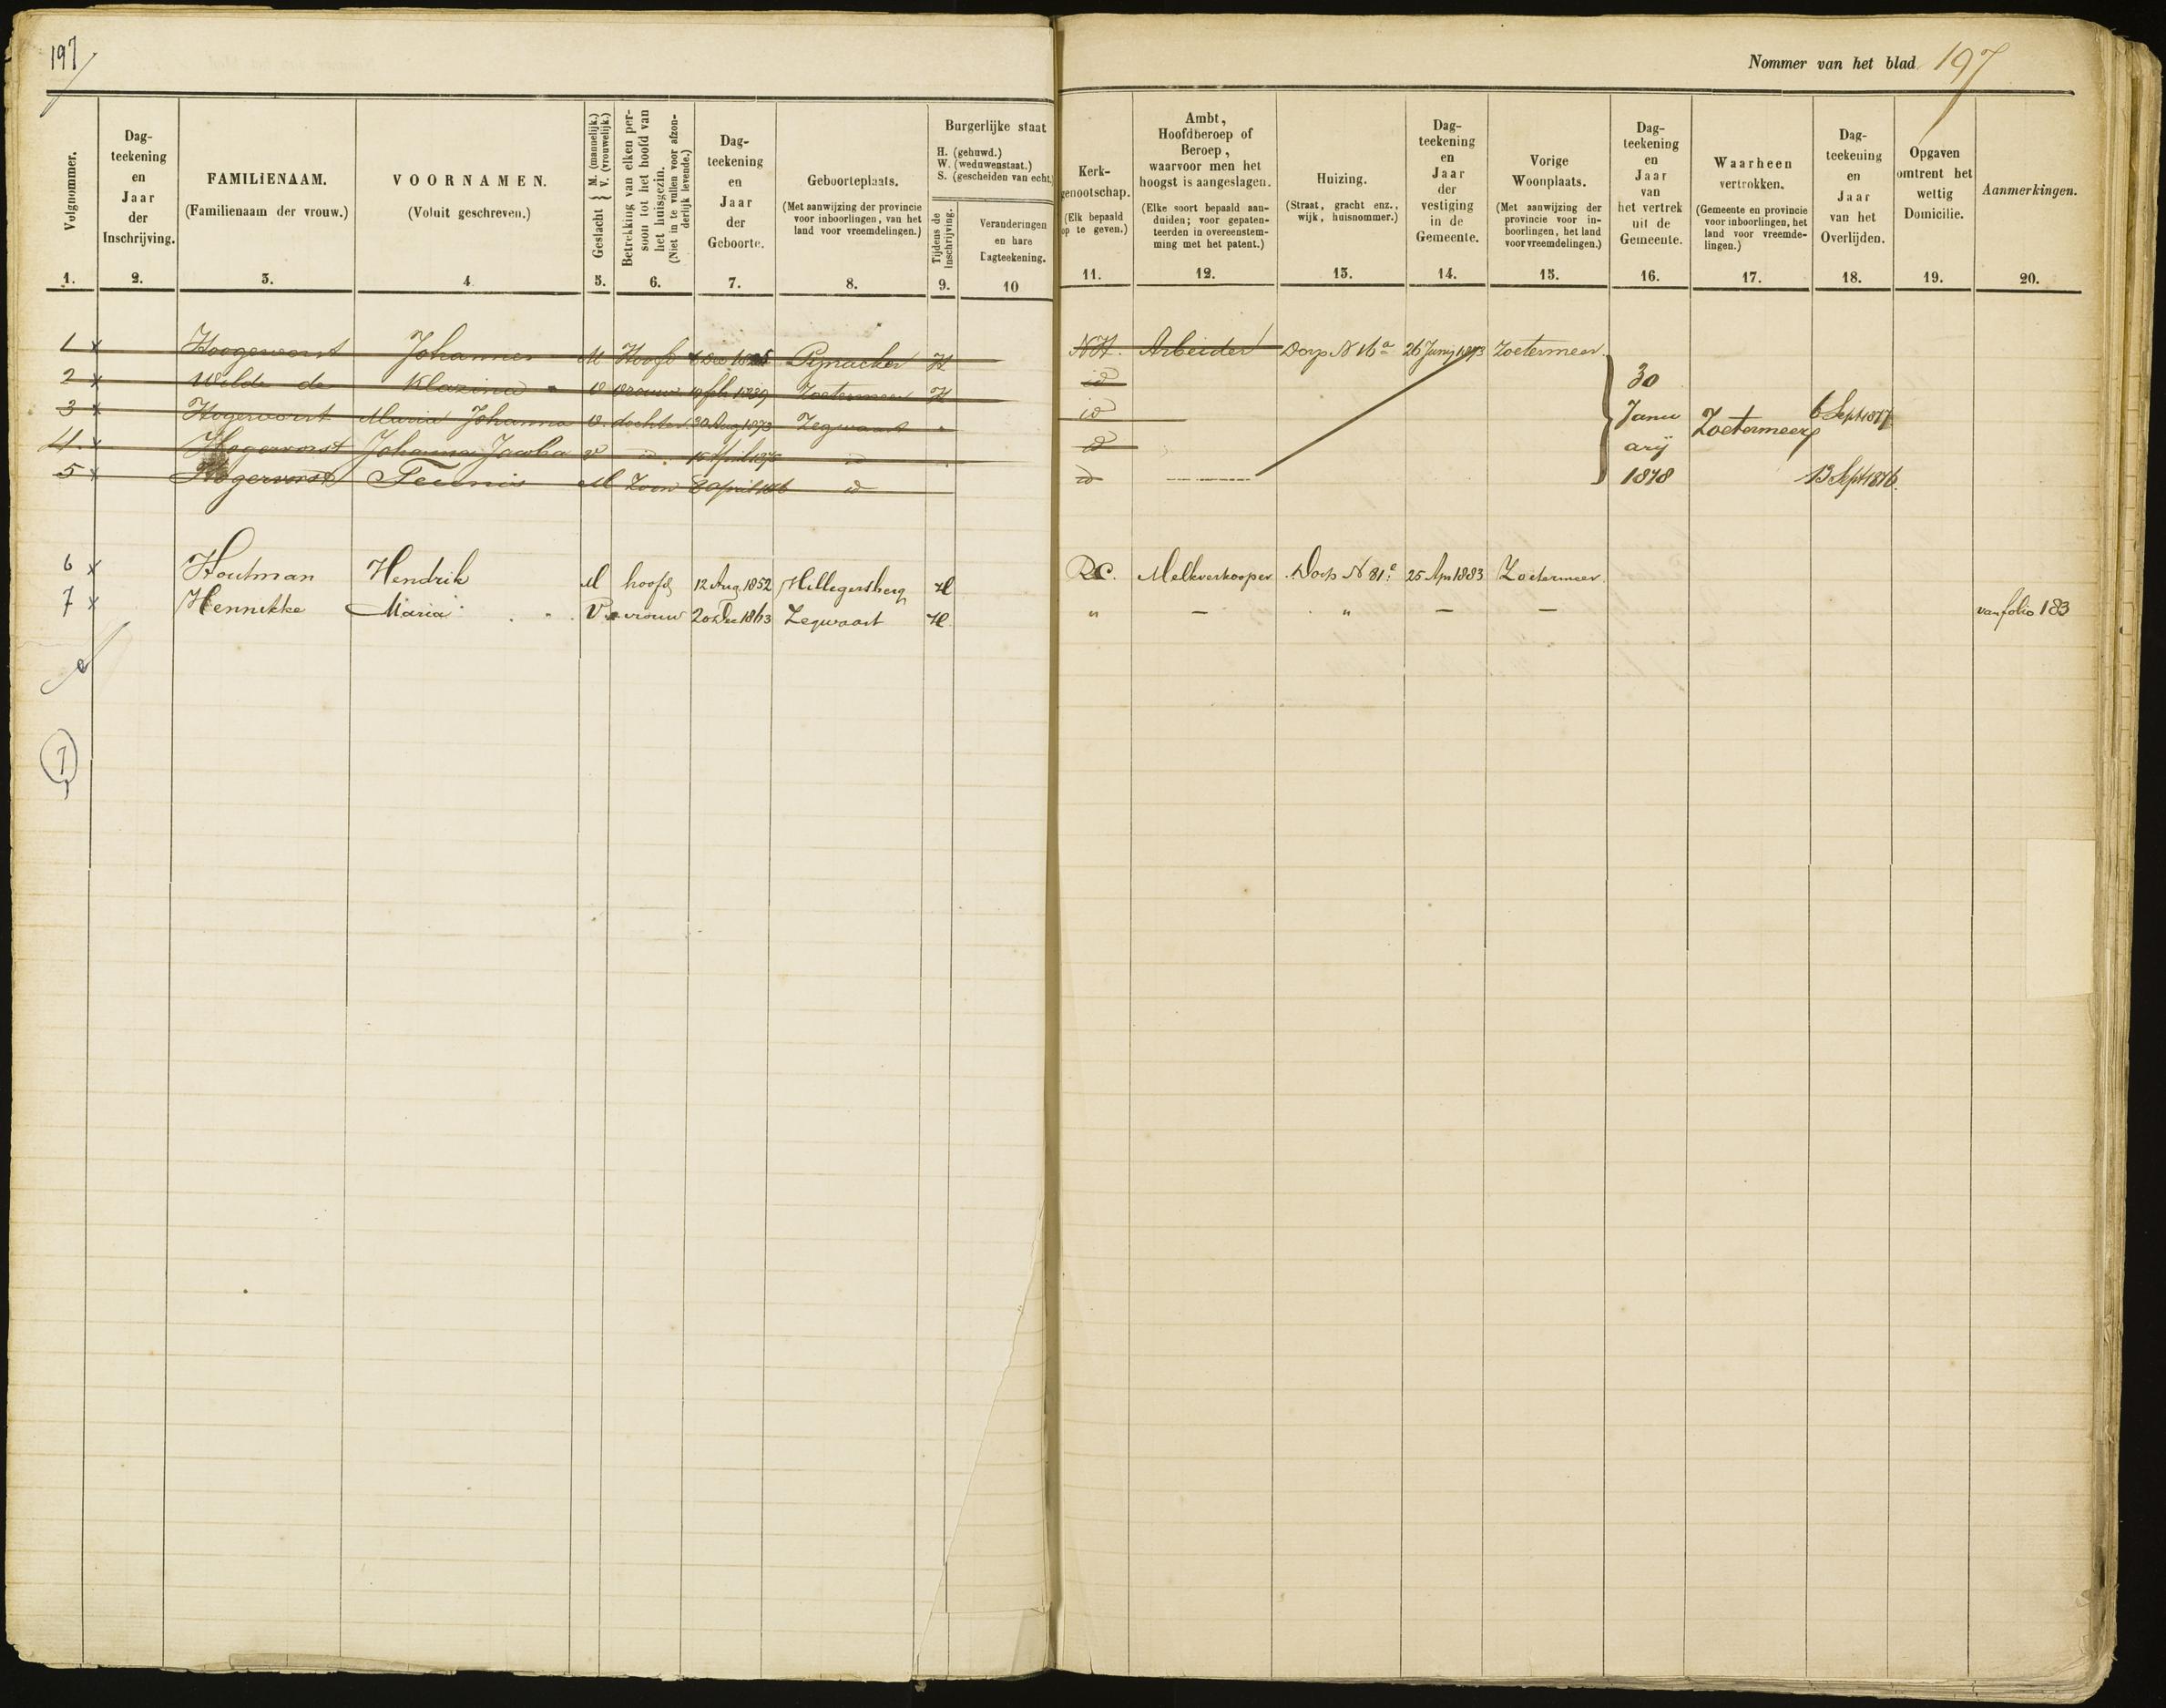 197
Nommer van het blad 197
Volgnommer.
1.
Dag-
teekening
en
Jaar
der
Inschrijving.
2.
FAMILIENAAM.
(Familienaam der vrouw.)
3.
VOORNAMEN.
(Voluit geschreven.)
4
Geslacht { M. (mannelijk.) V. (vrouwelijk.)
5.
Betrekking van elken per-
soon tot het hoofd van
het huisgezin.
(Niet in te vullen voor afzon-
derlijk levende.)
6.
Dag-
teekening
en
Jaar
der
Geboorte.
7.
Geboorteplaats.
(Met aanwijzing der provincie
voor inboorlingen, van het
land voor vreemdelingen.)
8.
Burgerlijke staat
H. (gehuwd.)
W. (weduwenstaat.)
S. (gescheiden van echt.)
Tijdens de
inschrijving.
9.
Veranderingen
en hare
Dagteekening.
10
Kerk-
genootschap.
(Elk bepaald
op te geven.)
11.
Ambt,
Hoofdberoep of
Beroep,
waarvoor men het
hoogst is aangeslagen.
(Elke soort bepaald aan-
duiden; voor gepaten-
teerden in overeenstem-
ming met het patent.)
12.
Huizing.
(Straat, gracht enz.,
wijk, huisnommer.)
13.
Dag-
teekening
en
Jaar
der
vestiging
in de
Gemeente.
14.
Vorige
Woonplaats.
(Met aanwijzing der
provincie voor in-
boorlingen, het land
voor vreemdelingen.)
15.
Dag-
teekening
en
Jaar
van
het vertrek
uit de
Gemeente.
16.
Waarheen
vertrokken.
(Gemeente en provincie
voor inboorlingen, het
land voor vreemde-
lingen.)
17.
Dag-
teekening
en
Jaar
van het
Overlijden.
18.
Opgaven
omtrent het
wettig
Domicilie.
19.
Aanmerkingen.
20.
1 x Hoogervorst Johannes M Hoofd Dec Pijnacker H NH. Arbeider Dorp N 16a 26 Junij 1873 Zoetermeer
2 x Wilde de Klazina V vrouw 19 feb 1839 Zoetermeer H id 30
3 x Hogervorst Maria Johanna V. dochter 20 Aug 1873 Zegwaart id Janu Zoetermeer 6 Sept 1877
4 x Hogervorst Johanna Jacoba V id 15 April 1875 id id arij
5 x Hogervorst Teunis M Zoon 8 April 1876 id id 1878 13 Sept 1876.
6 x Houtman Hendrik M hoofd 12 Aug 1852 Hillegersberg H RC. Melkverkooper Dorp N 81c 25 Apr 1883 Zoetermeer.
7 x Hennikke Maria V vrouw 20 Dec 1863 Zegwaart H " — " — — van folio 183
7